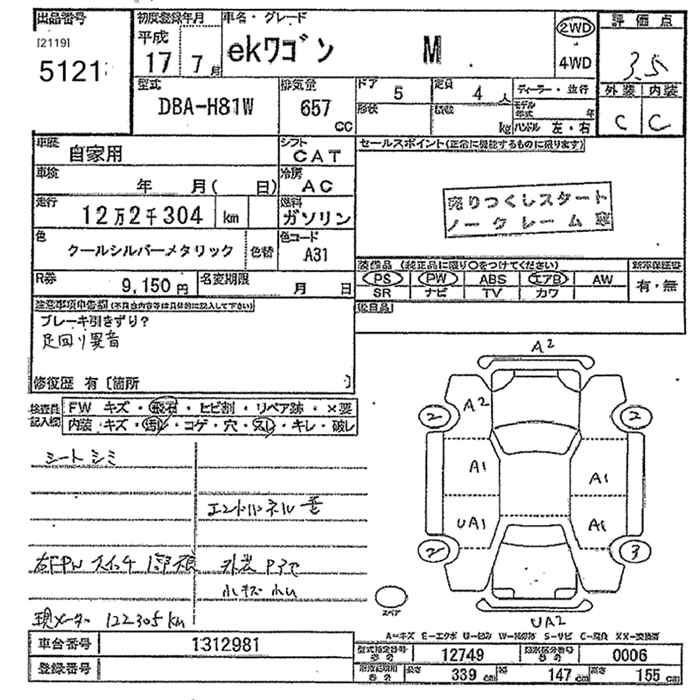 出品番号 初度登録年月 車名・グレード 評価点
[2119] 平成
5121 17 年 7 月 ekワゴン M 2WD 4WD 3.5
型式 排気量 ドア 定員 ディーラー・並行 外装 内装
DBA-H81W 657 CC 5 4 人 C C
形状 積数 kg モデル年式 年
ハンドル 左・右
車歴 自家用 シフト CAT セールスポイント(正常に機能するものに限ります)
車検 年 月( 日) 冷房 AC
売りつくしスタート
ノークレーム
走行 12万2千304 km 燃料 ガソリン
色 クールシルバーメタリック 色替 色コード A31
装備品 (純正品に限り○をつけてください) 新車保証書
PS PW ABS エアB AW 有・無
SR ナビ TV カワ
R券 9,150円 名変期限 月 日
注意事項申告欄(不具合内容等は具体的に記入して下さい) 後日品
ブレーキ引きずり?
足回り異音
修復歴 有 [箇所 ]
検査員記入欄
FW キズ・飛石・ヒビ割・リペア跡・×要
内装・キズ・汚レ・コゲ・穴・スレ・キレ・破レ
シートシミ
右FPWスイッチ
現メーター 122305km
外装
小キズ
A2
A2
2 2
A1 A1
UA1 A1
2 3
スペア
UA2
A-キズ E-エクボ U-凹み W-補修跡 S-サビ C-腐食 XX-交換済
車台番号 1312981 型式指定番号 12749 類別区分番号 0006
登録番号 長さ 339 cm 幅 147 cm 高さ 155 cm